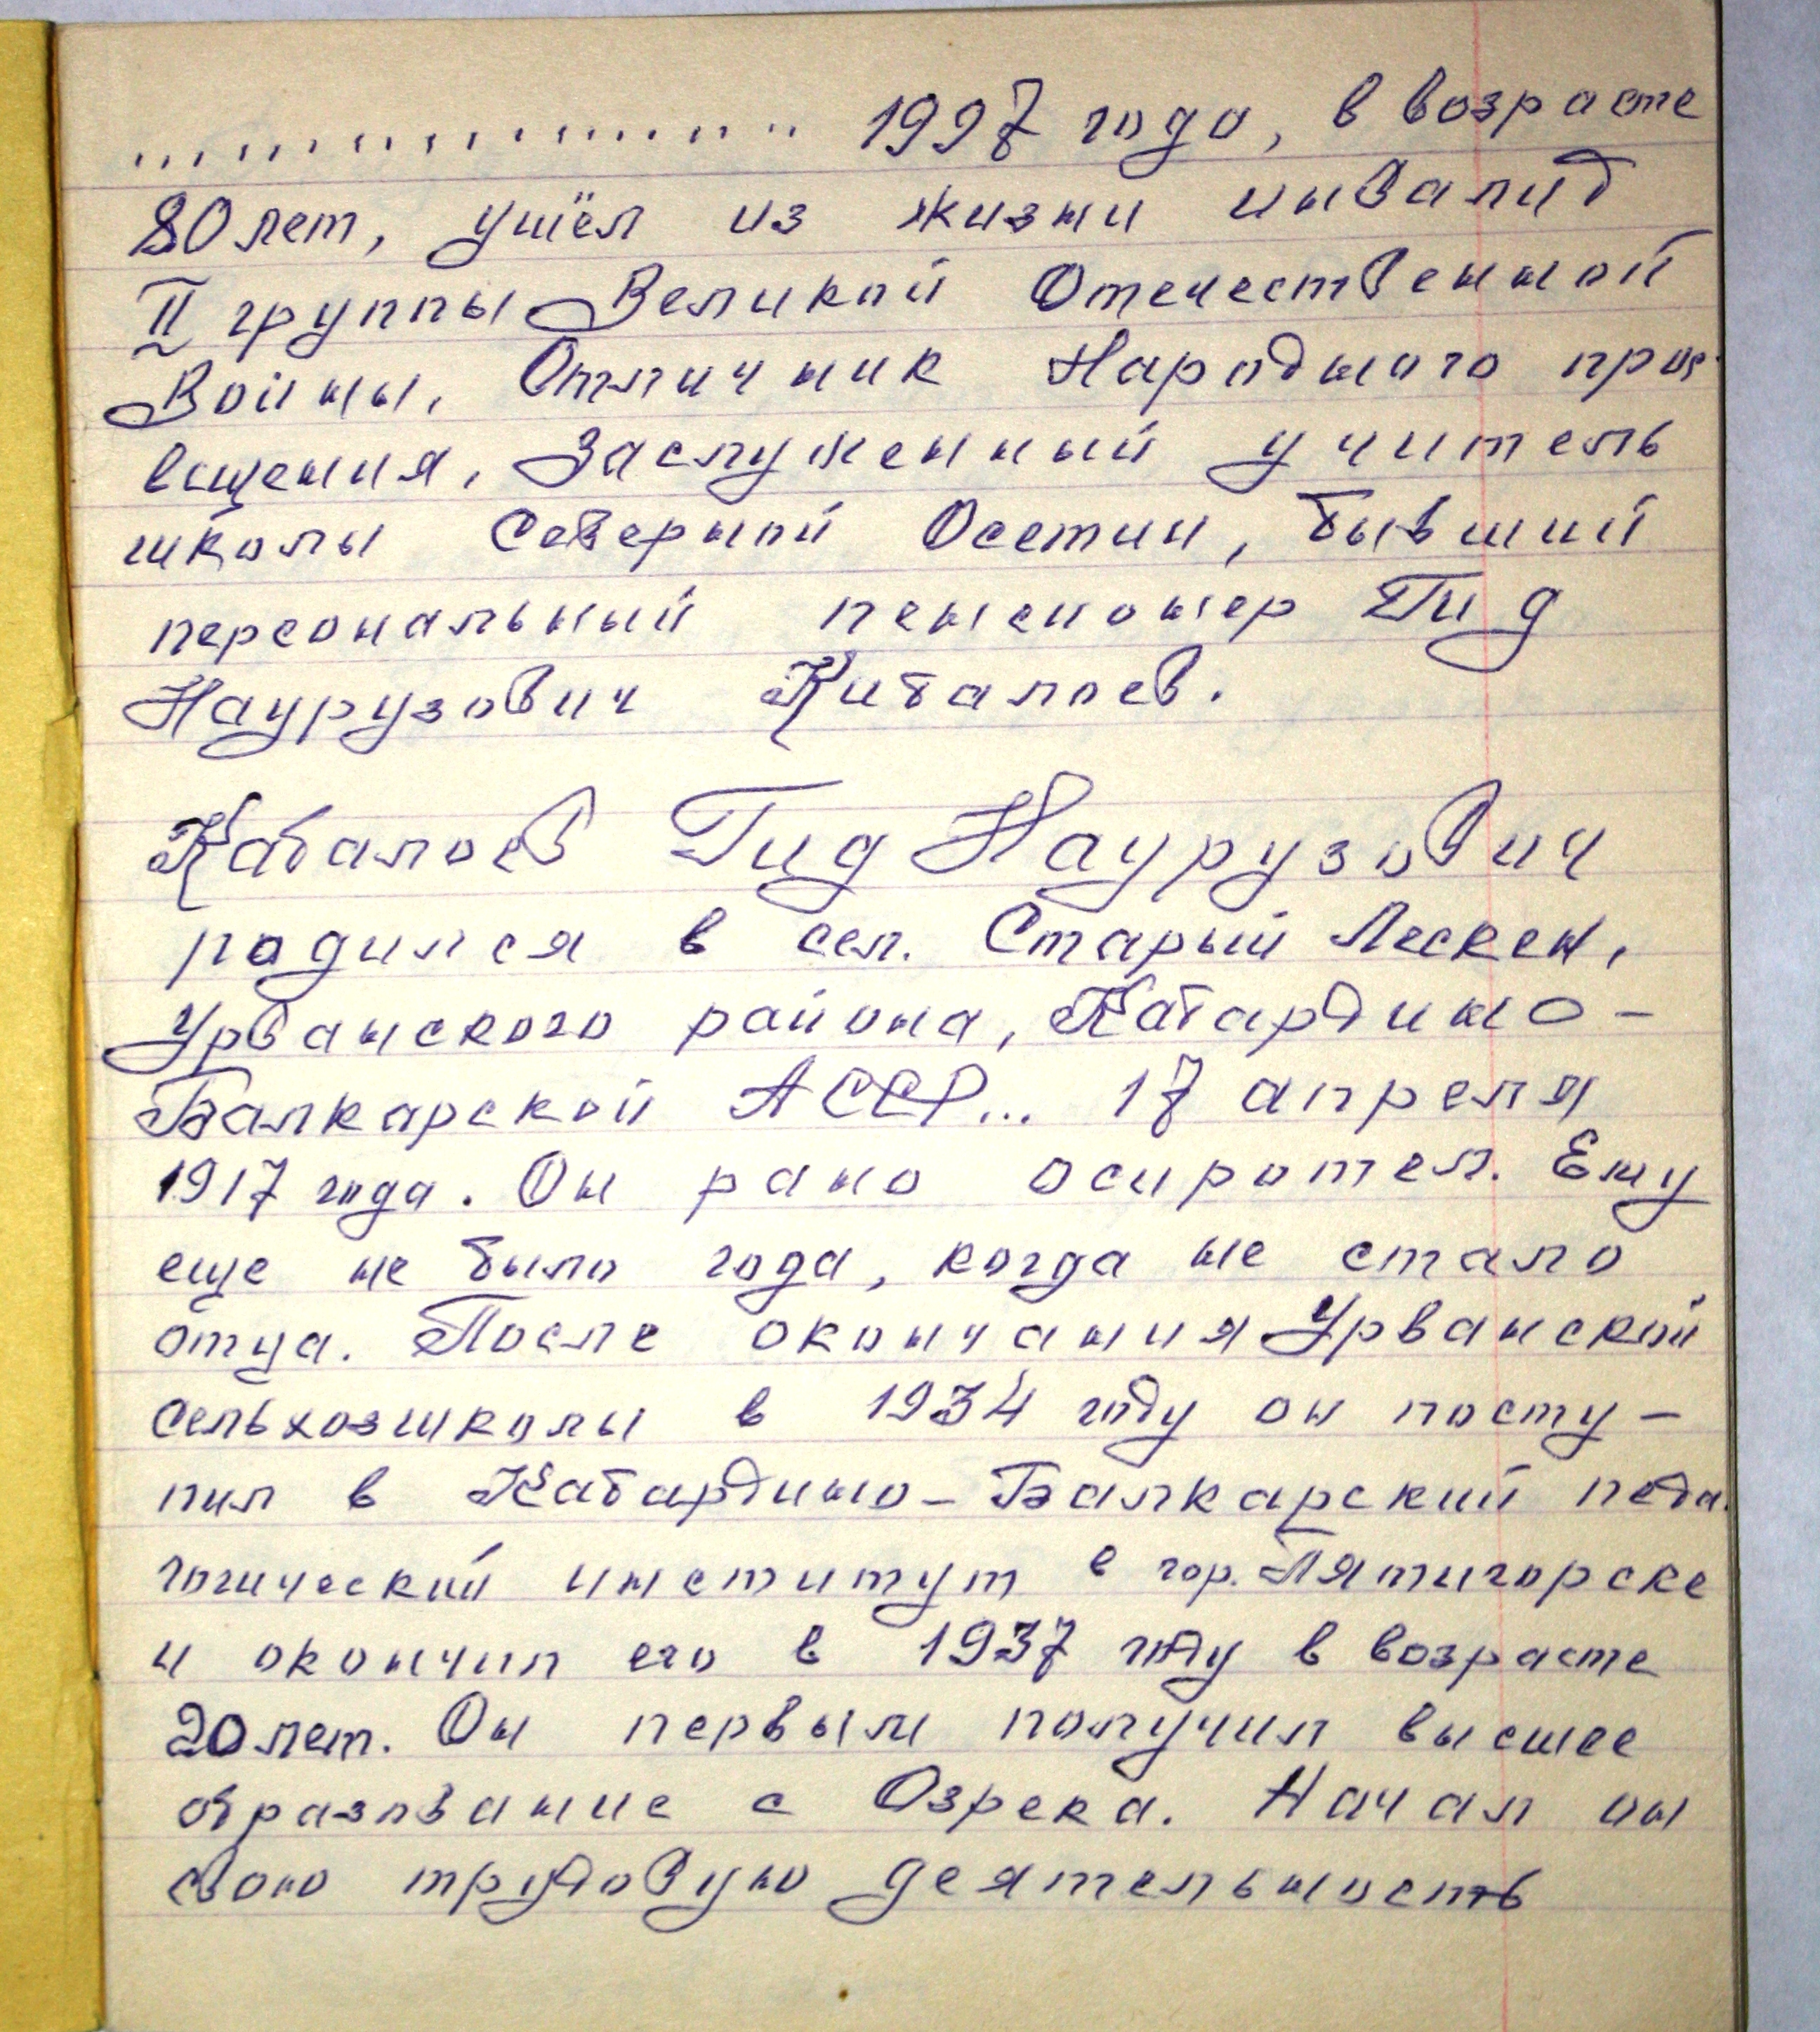 .................... 1997 года, в возрасте
80 лет, ушёл из жизни инвалид
II группы Великой Отечественной
Войны, Отличник Народного прос-
вещения, Заслуженный учитель
школы Северной Осетии, бывший
персональный пенсионер Гид
Наурузович Кибалоев.
Кабалоев Гид Наурузович
родился в сел. Старый Лескен,
Урванского района, Кабардино-
Балкарской АССР... 17 апреля
1917 года. Он рано осиротел. Ему
еще не было года, когда не стало
отца. После окончания Урванской
сельхозшколы в 1934 году он посту-
пил в Кабардино-Балкарский педа-
гогический институт в гор. Пятигорске
и окончил его в 1937 году в возрасте
20 лет. Он первым получил высшее
образование с Озрека. Начал он
свою трудовую деятельность